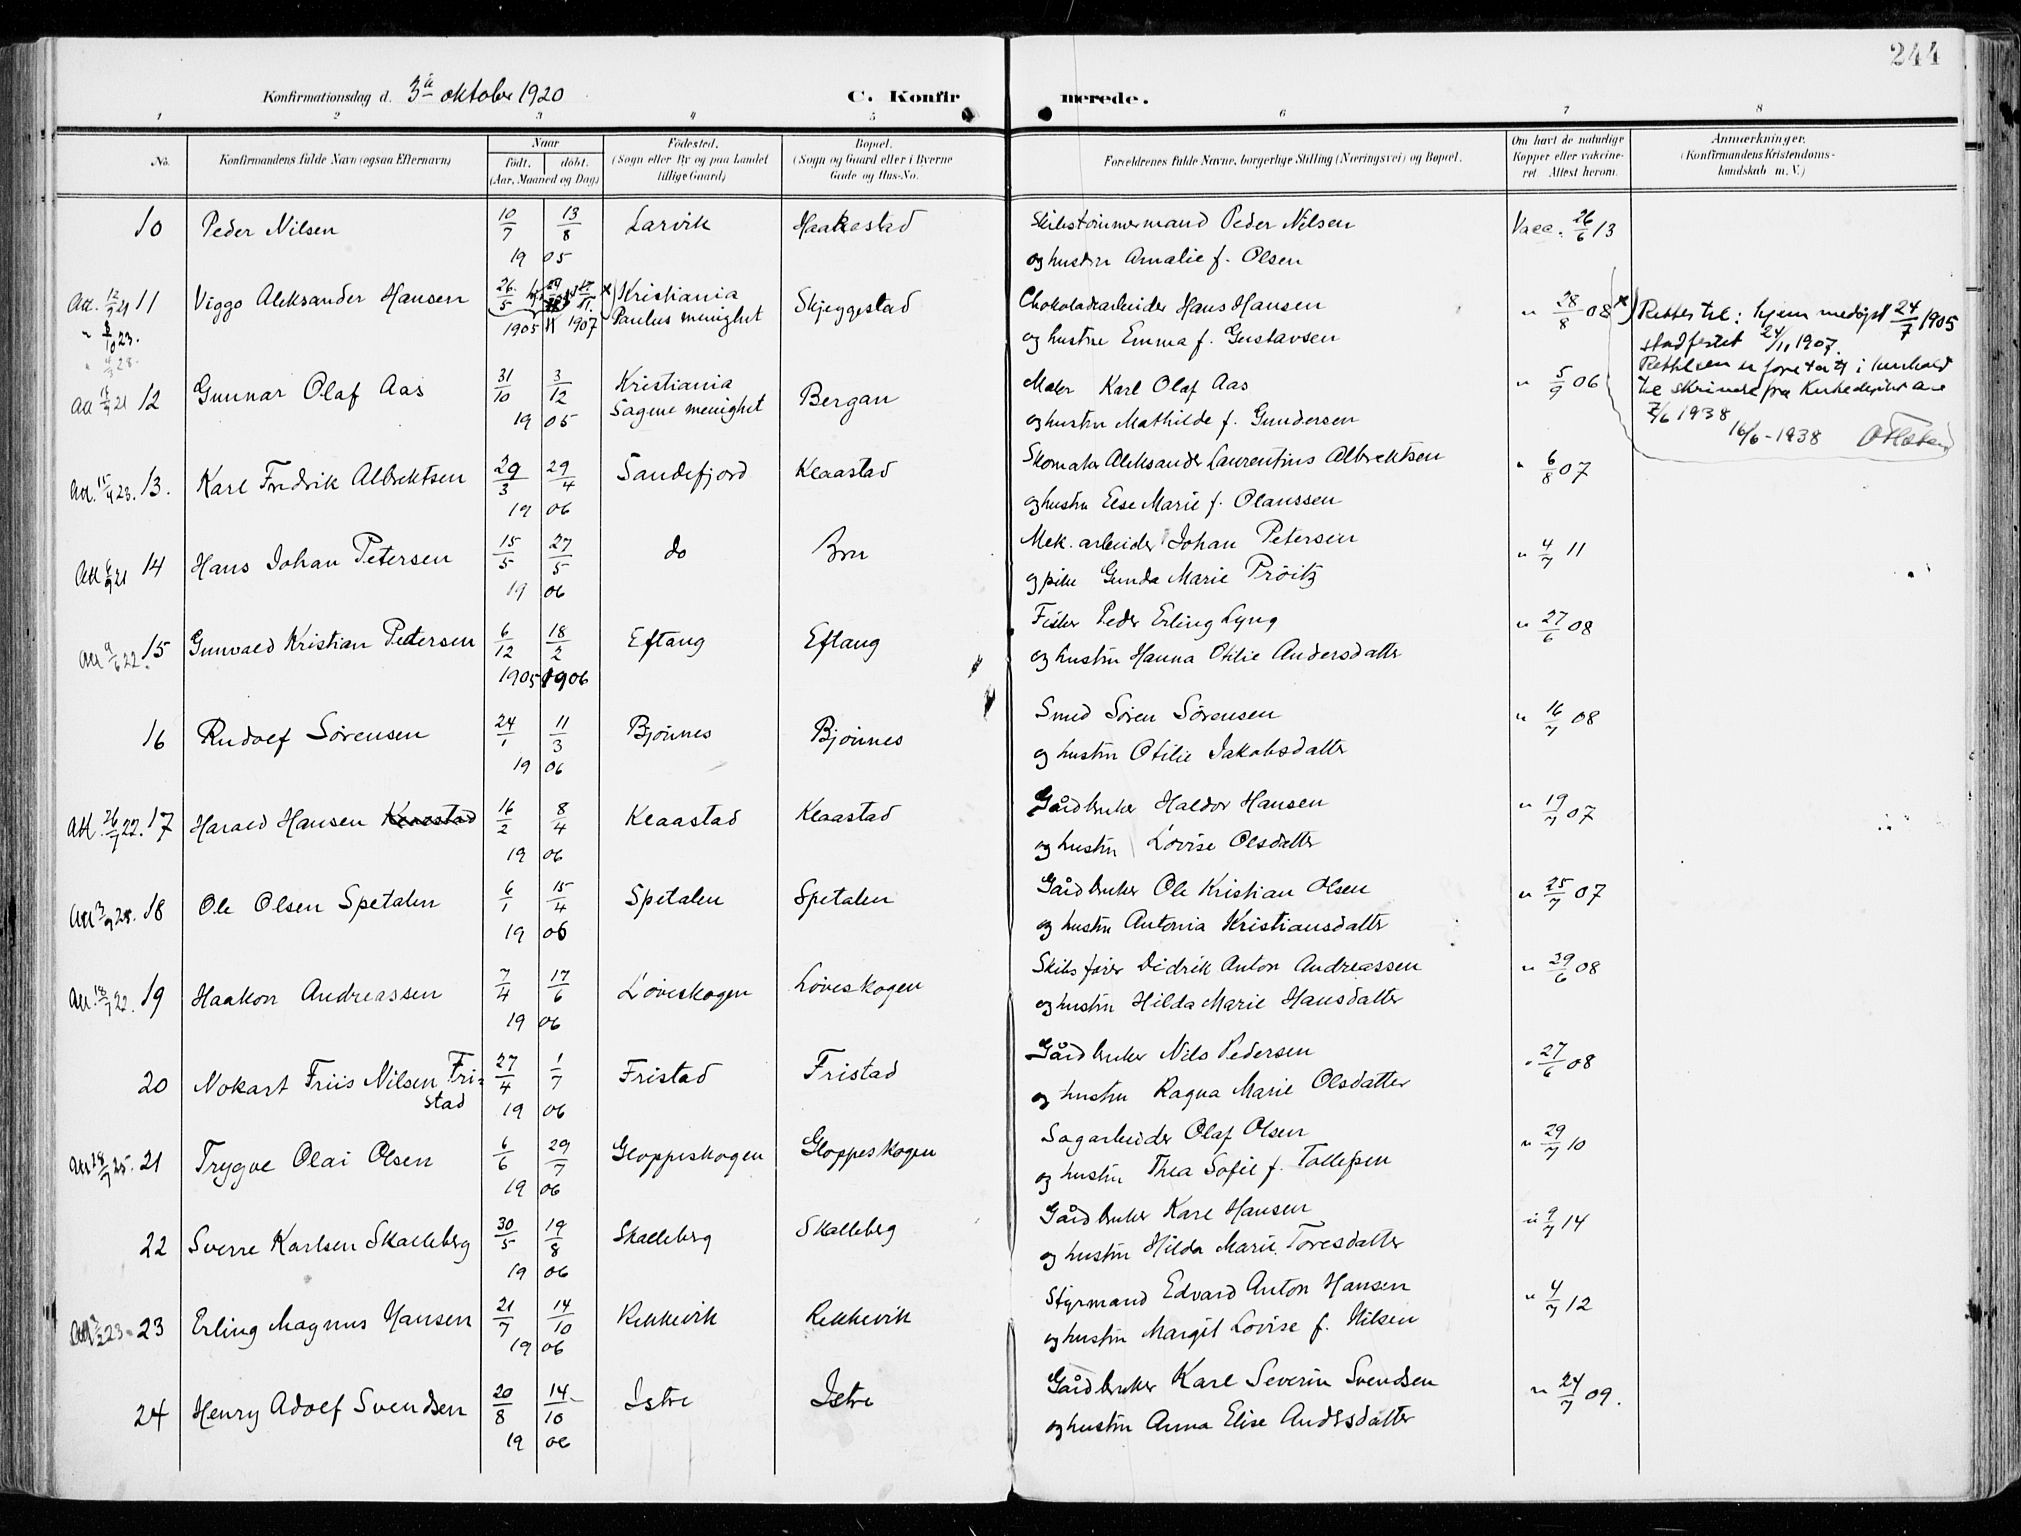 244
Konfirmationsdag d. 3die oktober 1920
C. Konfirmerede.
1 2 3 4 5 6 7 8
No.
Konfirmandens fulde Navn (ogsaa Efternavn)
Naar
født. døbt.
(Aar, Maaned og Dag)
Fødested.
(Sogn eller By og paa Landet
tillige Gaard)
Bopæl.
(Sogn og Gaard eller i Byerne
Gade og Hus-No.
Forældrenes fulde Navne, borgerlige Stilling (Næringsvei) og Bopæl.
Om havt de naturlige
Kopper eller vakcine-
ret. Attest herom.
Anmærkninger.
(Konfirmandens Kristendoms-
kundskab m. V.)
10 Peder Nilsen 10/7 13/8 Larvik Haakestad Skibstømmermand Peder Nilsen Vacc. 26/6 13
19 05 og hustru Amalie f. Olsen
Att. 12/7 21 11 Viggo Aleksander Hansen 26/5 Kristiania Skjeggestad Chokoladearbeider Hans Hansen " 28/8 08 x) Rettes til: hjemmedøpt 24/7 1905
" 8/10 23. 1905 1907 Paulus menighet og hustru Emma f. Gustavsen stadfestet 24/11 1907.
Rettelsen er foretatt i henhold
Att 12 Gunnar Olaf Aas 31/10 3/12 Kristiania Bergan Maler Karl Olaf Aas " 5/9 06 til skrivelse fra Kirkedepart. av
19 05 Sagene menighet og hustru Mathilde f. Gundersen 7/6 1938
16/6-1938
Att. 15/4 23. 13. Karl Fredrik Albrektsen 29/3 29/4 Sandefjord Klaastad Skomaker Aleksander Laurentius Albrektsen " 6/8 07
19 06 og hustru Else Marie f. Olaussen
Att 14 Hans Johan Petersen 15/5 27/5 do Bru Mek. arbeider Johan Petersen " 4/7 11
19 06 og pike Gunda Marie Prøitz
Att 9/6 22. 15 Gunvald Kristian Pedersen 6/12 18/2 Eftang Eftang Fisker Peder Erling Lyng " 27/6 08
1905 1906 og hustru Hanna Otilie Andersdatter
16 Rudolf Sørensen 24/1 11/3 Bjønnes Bjønnes Smed Søren Sørensen " 16/7 08
19 06 og hustru Otilie Jakobsdatter
Att. 26/7 22. 17 Harald Hansen Klaastad 16/2 8/4 Klaastad Klaastad Gårdbruker Haldor Hansen " 19/7 07
19 06 og hustru Lovise Olsdatter
Att 18 Ole Olsen Spetalen 6/1 15/4 Spetalen Spetalen Gårdbruker Ole Kristian Olsen " 25/7 07
19 06 og hustru Antonia Kristiansdatter
Att. 18/7 22. 19 Haakon Andreassen 7/4 17/6 Løveskogen Løveskogen Skibsfører Didrik Anton Andreassen " 29/6 08
19 06 og hustru Hilda Marie Hansdatter
20 Nokart Friis Nilsen Fri= 27/4 1/7 Fristad Fristad Gårdbruker Nils Pedersen " 27/6 08
stad 19 06 og hustru Ragna Marie Olsdatter
Att 18/7 25. 21 Trygve Olai Olsen 6/6 29/7 Gloppeskogen Gloppeskogen Sagarbeider Olaf Olsen " 29/7 10
19 06 og hustru Thea Sofie f. Tollefsen
22 Sverre Karlsen Skalleberg 30/5 19/8 Skalleberg Skalleberg Gårdbruker Karl Hansen " 9/7 14
19 06 og hustru Hilda Marie Toresdatter
Att 23 Erling Magnus Hansen 21/7 14/10 Rekkevik Rekkevik Styrmand Edvard Anton Hansen " 4/7 12
19 06 og hustru Margit Lovise f. Nilsen
24 Henry Adolf Svendsen 20/8 14/10 Istre Istre Gårdbruker Karl Severin Svendsen " 24/7 09.
19 06 og hustru Anna Elise Andersdatter